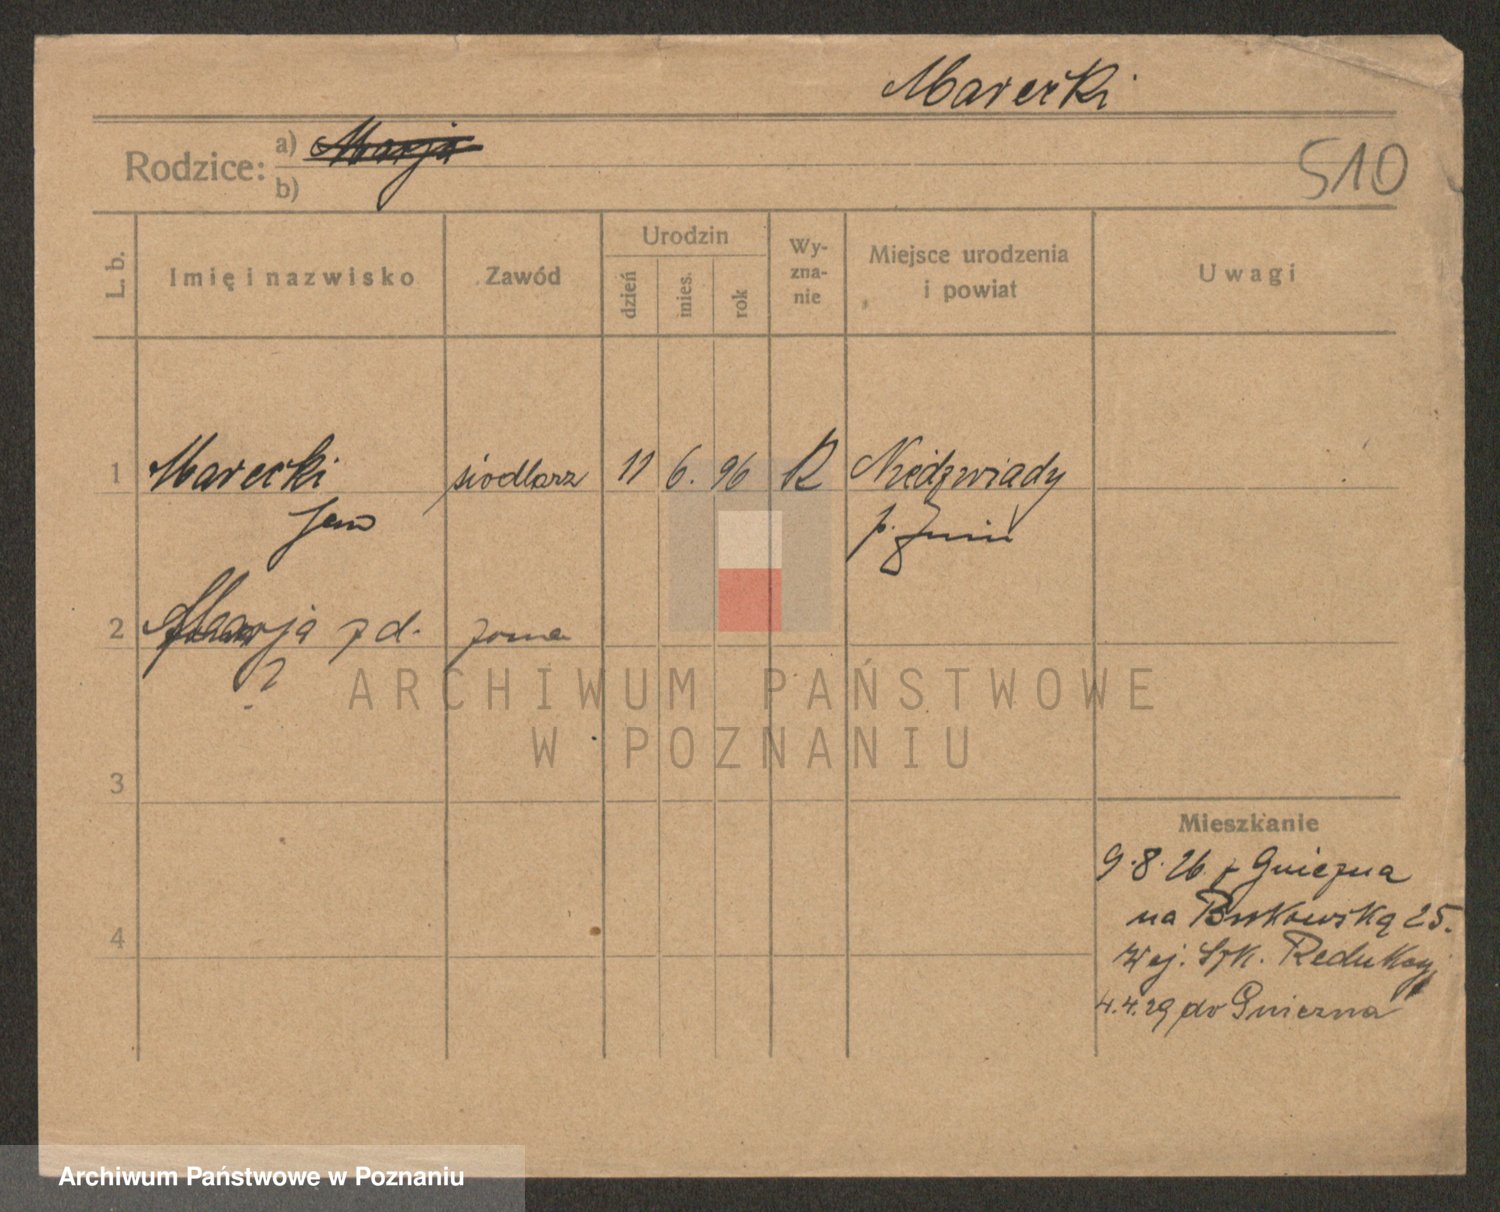 Marecki
Rodzice: a) Marja
b)
510
L. b.
Imię i nazwisko
Zawód
Urodzin
dzień
mies.
rok
Wy-
zna-
nie
Miejsce urodzenia
i powiat
Uwagi
1 Marecki siodlarz 11 6. 96 R Niedzwiady
Jan p. Żnin
2 Marja z d. żona
?
3
4
Mieszkanie
9.8.26 z Gniezna
na Bukowską 25.
Woj. Szk. Redukcyj
4.4.29 do Gniezna
ARCHIWUM PAŃSTWOWE
W POZNANIU
Archiwum Państwowe w Poznaniu